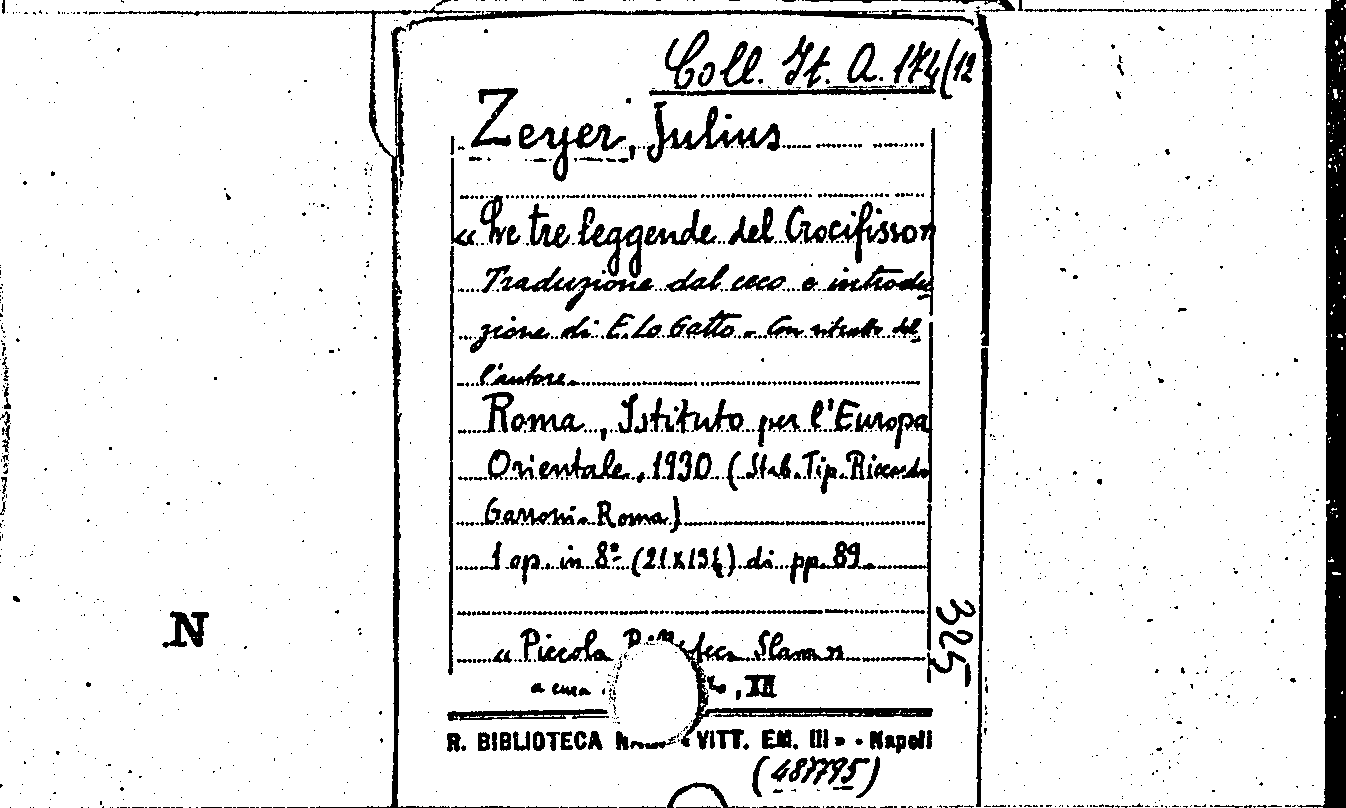 Coll. It. A. 174/12
Zeyer, Julius
« Le tre leggende del Crocifisso »
Traduzione dal ceco e introdu
zione di E. Lo Gatto - Con ritratto del
l'autore.
Roma, Istituto per l'Europa
Orientale, 1930 (Stab. Tip. Riccardo
Garroni. Roma)
1 op. in 8º (21x13½) di pp. 89.
« Piccola Slava »
a cura XII
R. BIBLIOTECA « VITT. EM. III » - Napoli
(487795)
325
N